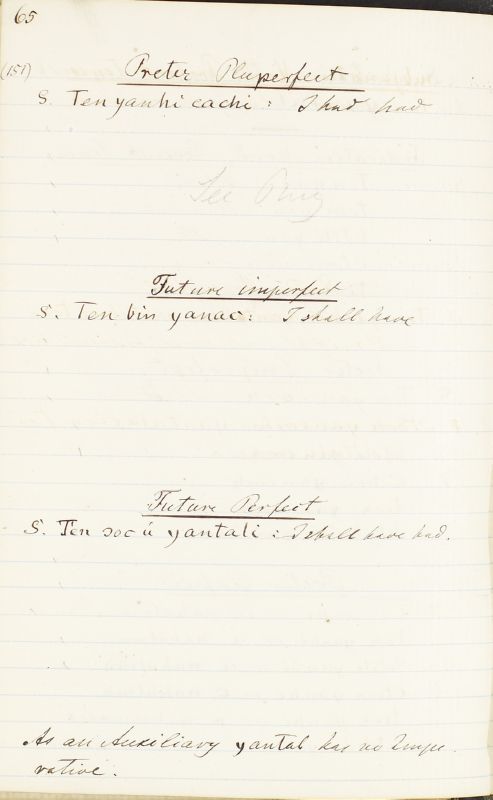 65
(157)
Preter Pluperfect
S. Ten yanhi cachi : I had had
See
Future imperfect
S. Ten bin yanac : I shall have
Future Perfect
S. Ten ɔoc ú yantali : I shall have had.
As an Auxiliary yantal has no Impe-
rative.